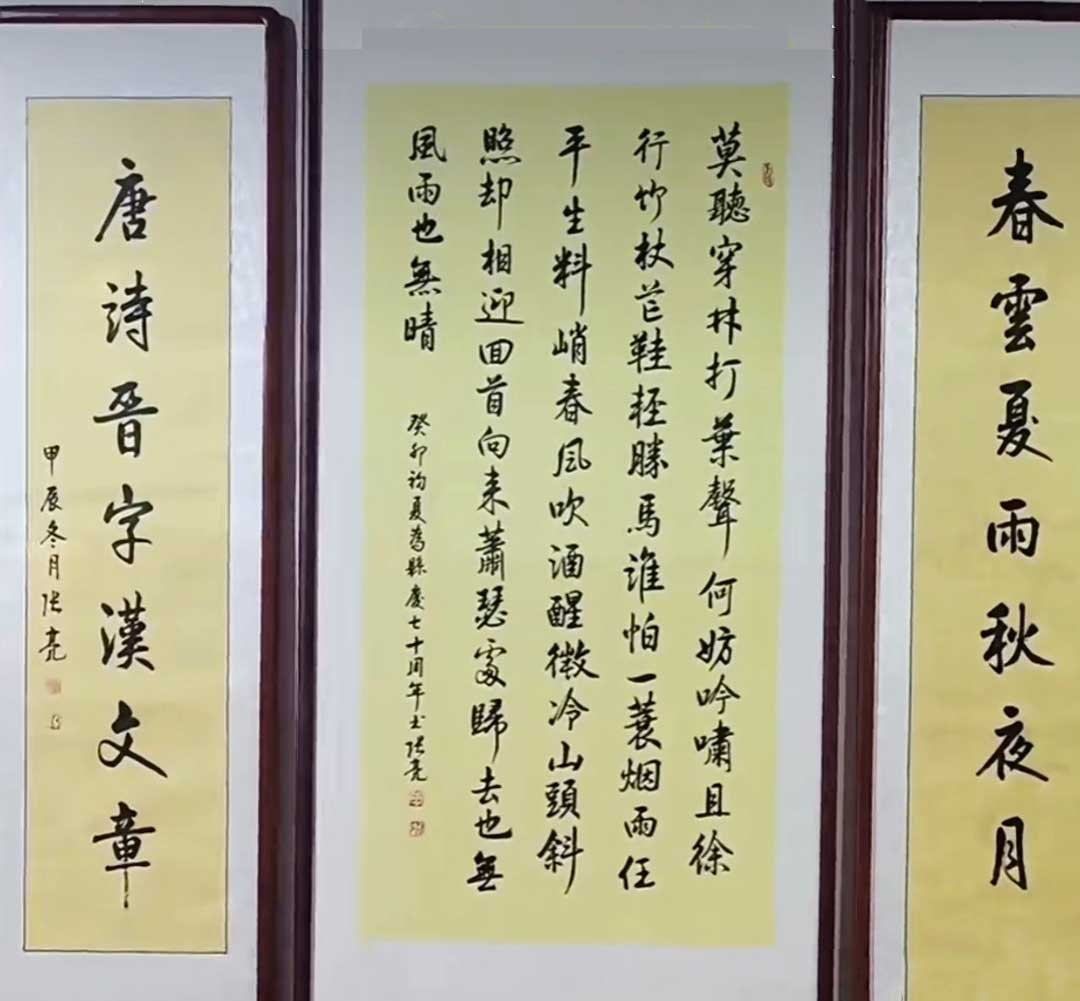 春雲夏雨秋夜月
莫聽穿林打葉聲何妨吟嘯且徐
行竹杖芒鞋輕勝馬誰怕一蓑烟雨任
平生料峭春風吹酒醒微冷山頭斜
照却相迎回首向来蕭瑟處歸去也無
風雨也無晴
癸卯初夏為縣慶七十周年书張亮
唐詩晋字漢文章
甲辰冬月張亮